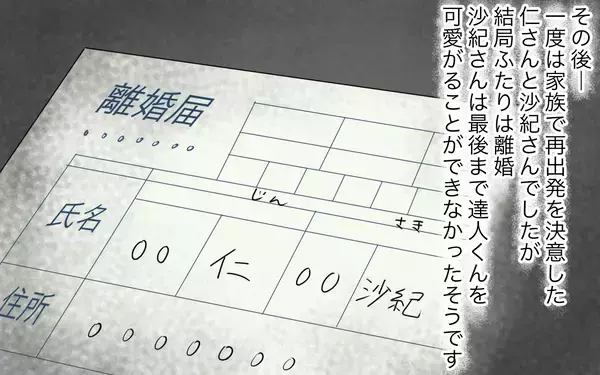 その後―
一度は家族で再出発を決意した
仁さんと沙紀さんでしたが
結局ふたりは離婚
沙紀さんは最後まで達人くんを
可愛がることができなかったそうです
離婚届
じん
さき
氏名
○○
仁
○○
沙紀
住所